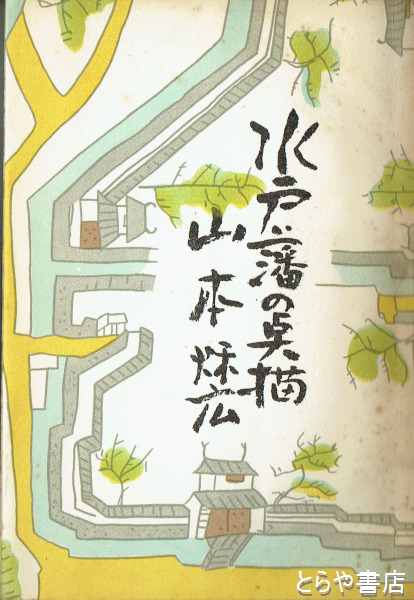 水戸藩の点描
山本秋広
とらや書店